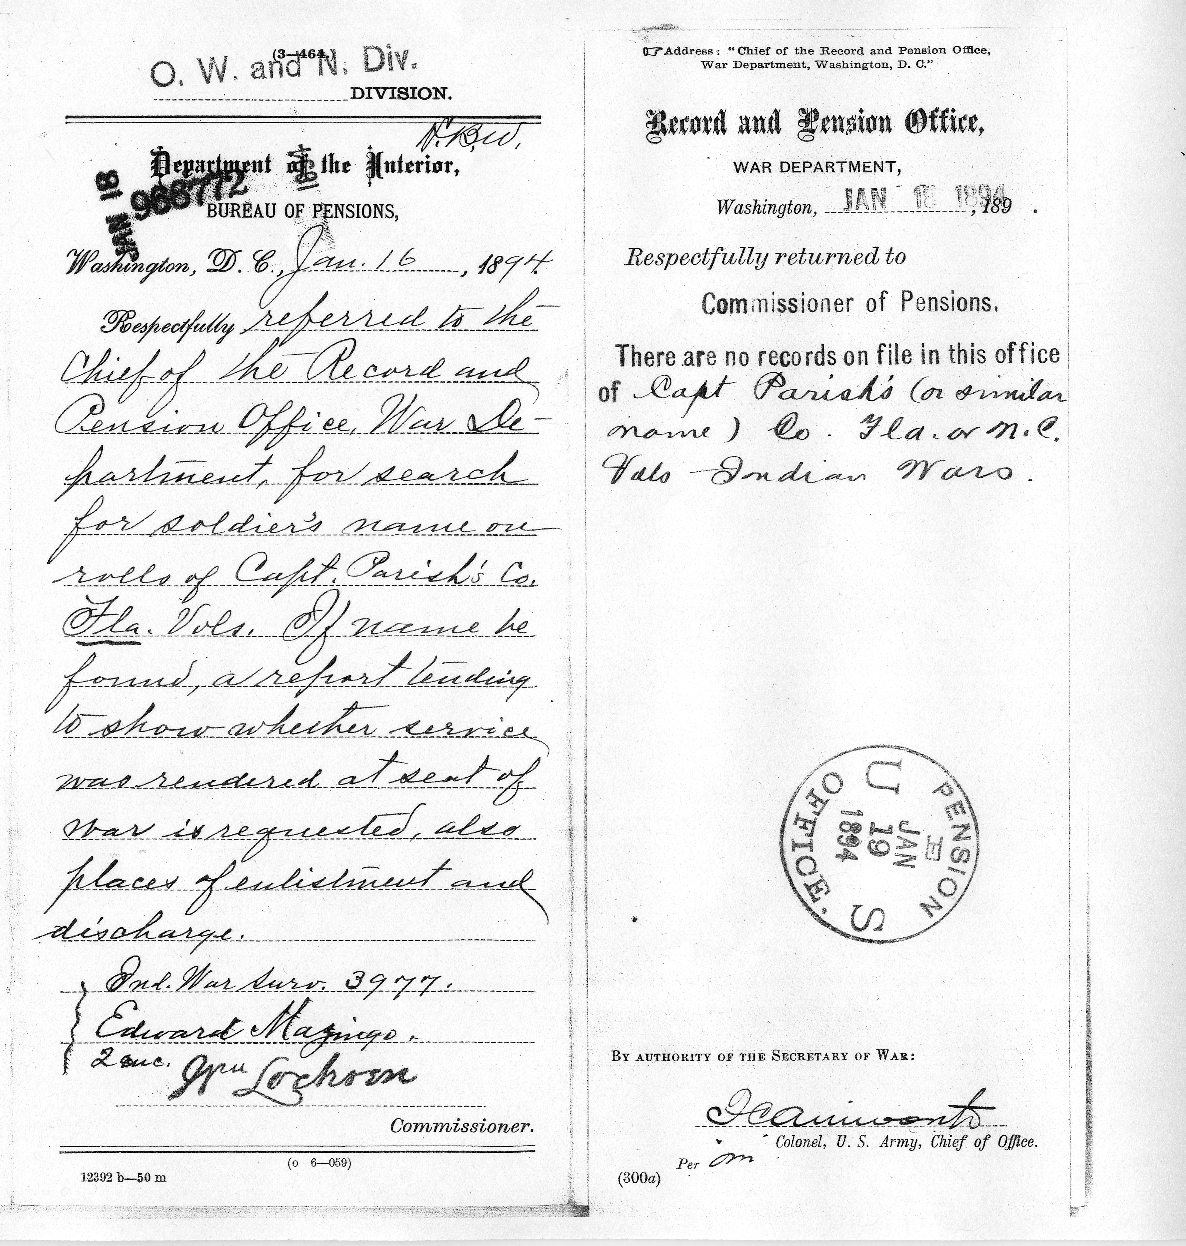 (3—464.)
O. W. and N. Div.
DIVISION.
H.B.W.
Department of the Interior,
JAN 18
968772
BUREAU OF PENSIONS,
Washington, D. C., Jan. 16, 1894.
Respectfully referred to the
Chief of the Record and
Pension Office, War De-
partment, for search
for soldier's name on
rolls of Capt. Parish's Co.
Fla. Vols. If name be
found, a report tending
to show whether service
was rendered at seat of
war is requested, also
places of enlistment and
discharge.
Ind. War Surv. 3977.
Edward Mazingo.
2 enc.
Wm Lochren
Commissioner.
(o 6—059)
12392 b—50 m
Address: "Chief of the Record and Pension Office,
War Department, Washington, D. C."
Record and Pension Office,
WAR DEPARTMENT,
Washington, JAN 18 1894, 189 .
Respectfully returned to
Commissioner of Pensions.
There are no records on file in this office
of Capt Parish's (or similar
name) Co. Fla. or N.C.
Vols Indian Wars.
U S PENSION OFFICE.
JAN
19
1894
BY AUTHORITY OF THE SECRETARY OF WAR:
F C Ainsworth
Colonel, U. S. Army, Chief of Office.
Per
(300a)